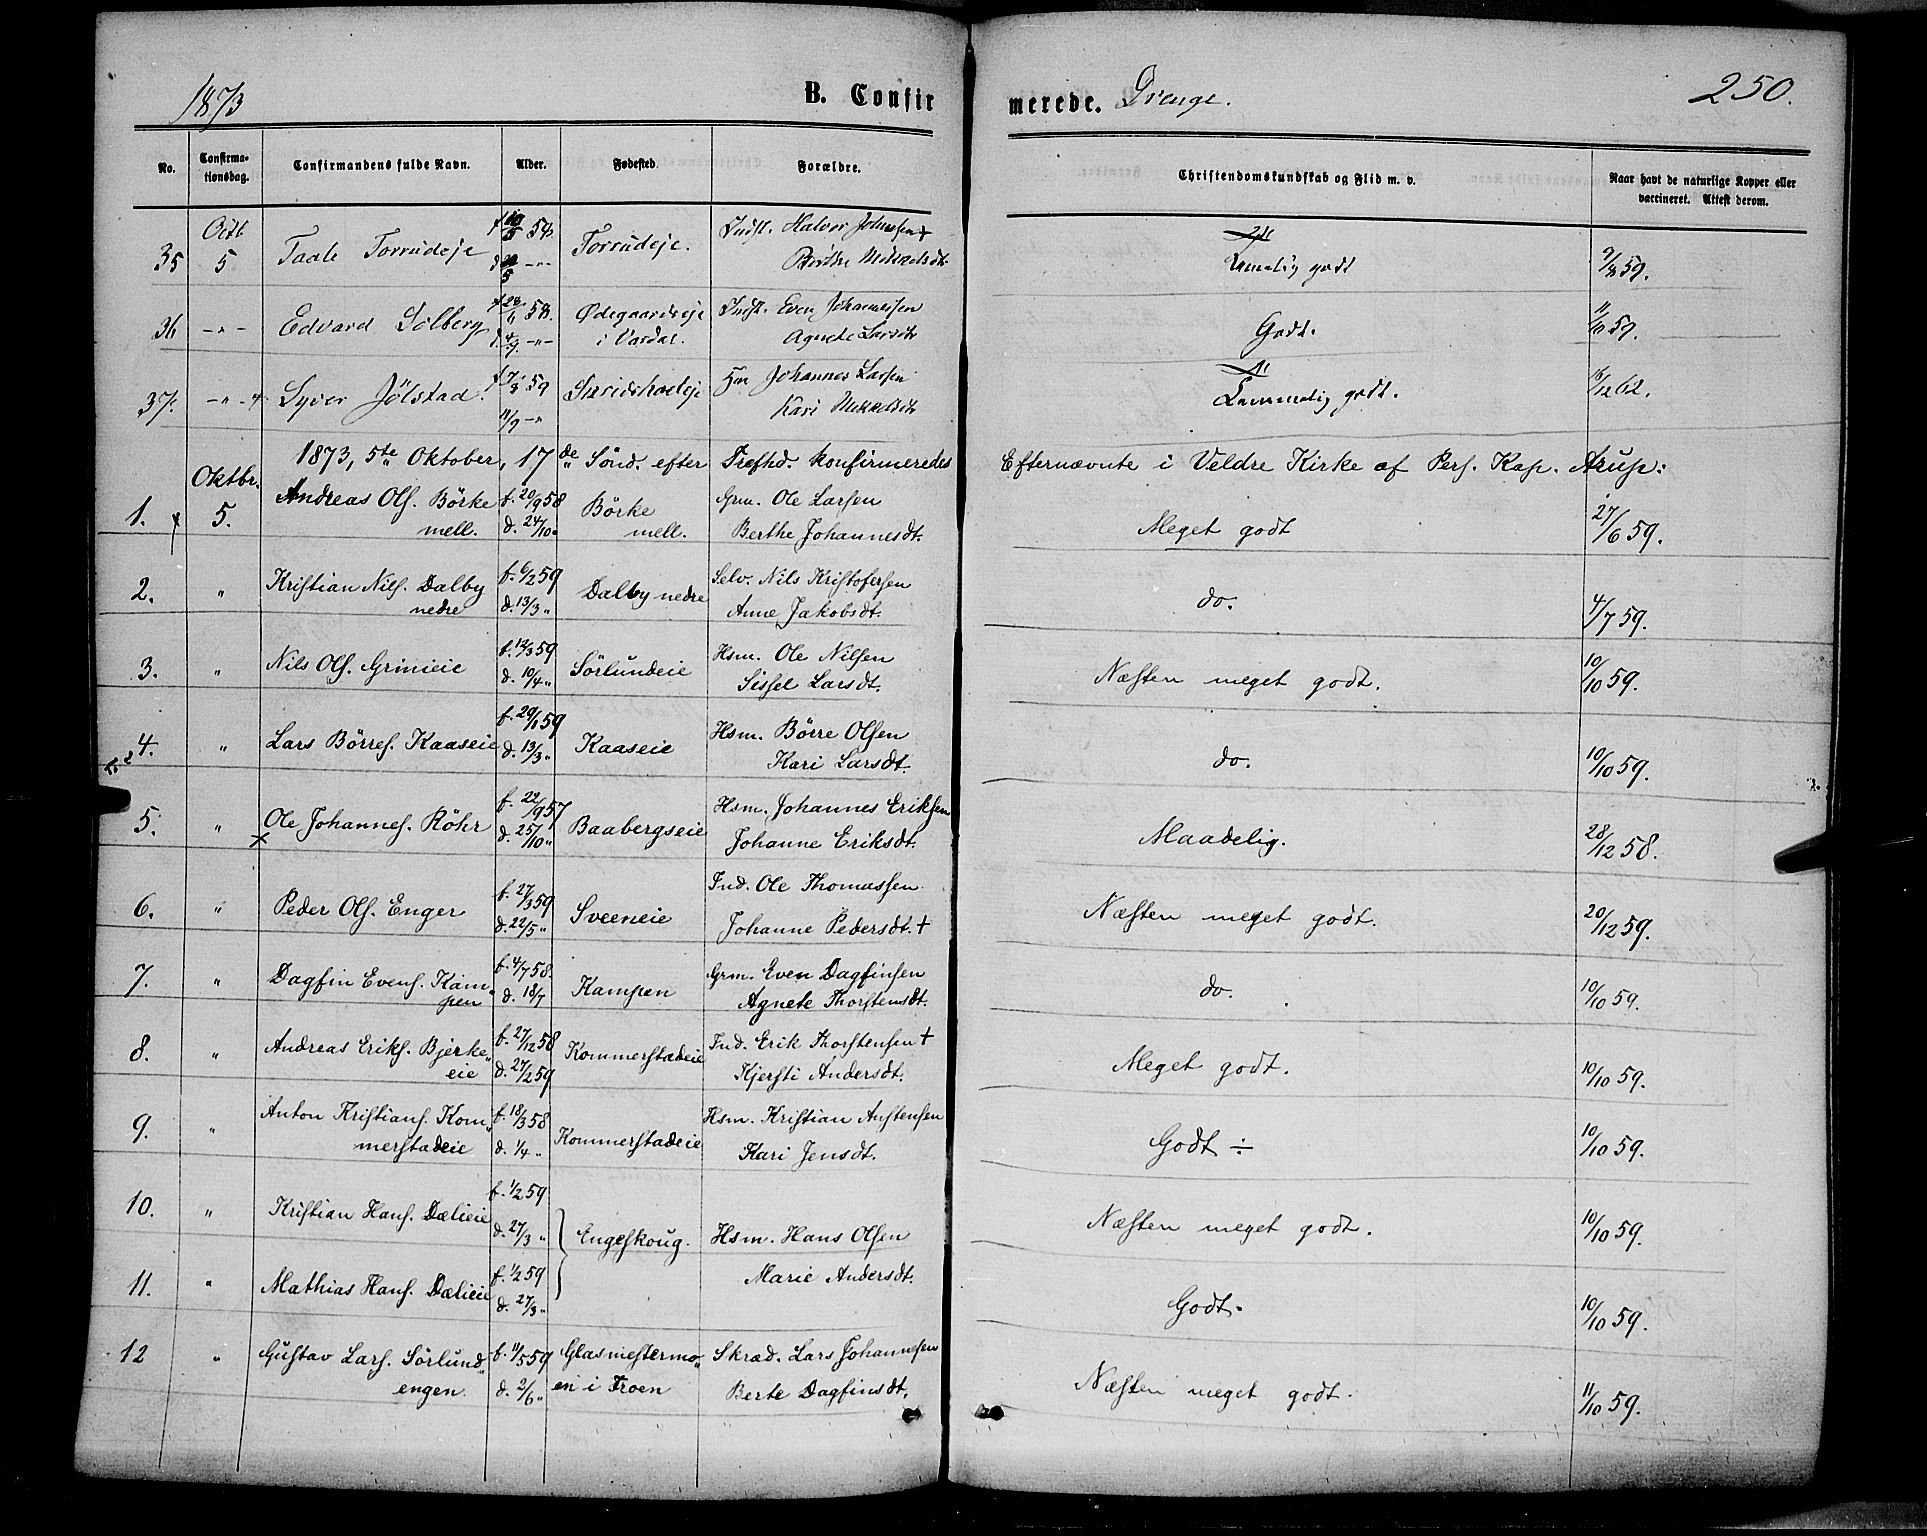 1873
B. Confirmerede. Drenge.
250.
No. Confirmationsdag. Confirmandens fulde Navn. Alder. Fødested. Forældre. Christendomskundskab og Flid m. v. Naar havt de naturlige Kopper eller vaccineret. Attest derom.
Octb
35 5 Taale Torrudeje Torrudeje. Indst. Halvor Johnssen +
Berthe Mikkelsdt. Temelig godt 59.
36 -"- Edvard Sølberg 58. Ødegaardseje Indst. Even Johannessen
i Vardal. Agnethe Larsdtr Godt. 11/10 59.
37. -"- Syver Jölstad. 59 Johannes Larsen
11/9 -"- Kari Mikkelsdtr Temmelig godt. 16/12 62.
1873, 5te Oktober, 17de Sönd. efter Trefhd. konfirmeredes Efternævnte i Veldre Kirke af Pers. Kap. Arup:
Oktbr.
1. 5. Andreas Ols. Börke f. 20/9 58 Börke Grm. Ole Larsen
mell. d. 24/10 " mell. Berthe Johannesdt. Meget godt 27/6 59.
2. " Kristian Nils. Dalby f. 6/2 59 Dalby nedre Selv. Nils Kristofersen
nedre d. 13/3 " Anne Jakobsdt. do. 4/7 59.
3. " Nils Ols. Grinieie f. 13/3 59 Sörlundeie Hsm. Ole Nilsen
d. 10/4 " Sissel Larsdt. Næsten meget godt. 10/10 59.
4. " Lars Börres. Kaaseie f. 20/1 59 Kaaseie Hsm. Börre Olsen
d. 13/3 " Kari Larsdt. do. 10/10 59.
5. " Ole Johannes. Röhr f. 22/9 57 Baabergseie Hsm. Johannes Eriksen
x d. 25/10 " Johanne Eriksdt. Maadelig. 28/12 58.
6. " Peder Ols. Enger f. 27/3 59 Sveeneie Ind. Ole Thomassen
d. 22/5 " Johanne Pedersdt. + Næsten meget godt. 20/12 59.
7. " Dagfin Evens. Kam- f. 4/7 58. Kampen Grm. Even Dagfinsen
pen d. 18/7 Agnete Thorstensdt. do. 10/10 59.
8. " Andreas Eriks. Bjerke- f. 27/12 58 Kommerstadeie Ind. Erik Thorstensen +
eie d. 27/2 59 Kjersti Andersdt. Meget godt. 10/10 59.
9. " Anton Kristians. Kom- f. 18/3 58 Kommerstadeie Hsm. Kristian Austensen
merstadeie d. 1/4 " Kari Jensdt. Godt ÷ 10/10 59.
10. " Kristian Hans. Dælieie f. 1/2 59
d. 27/3 " } Engeskoug. Hsm. Hans Olsen Næsten meget godt. 10/10 59.
11. " Mathias Hans. Dælieie f. 1/2 59 Marie Andersdt.
d. 27/3 " Godt. 10/10 59.
12 " Gustav Lars. Sörlund- f. 11/5 59 Glasmestermo- Skræd. Lars Johannesen
engen. d. 2/6 " en i Troen Berte Dagfinsdt. Næsten meget godt. 11/10 59.